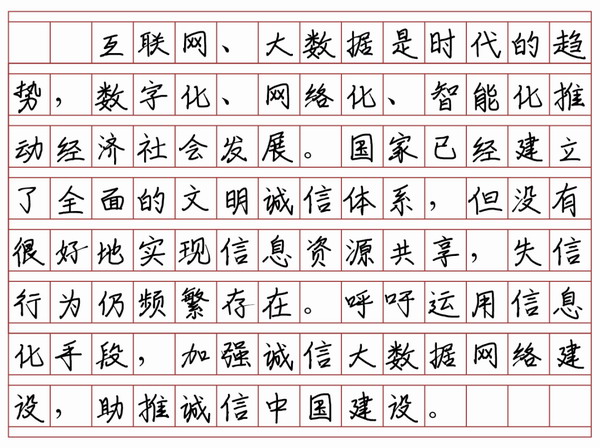 互联网、大数据是时代的趋
势，数字化、网络化、智能化推
动经济社会发展。国家已经建立
了全面的文明诚信体系，但没有
很好地实现信息资源共享，失信
行为仍频繁存在。呼吁运用信息
化手段，加强诚信大数据网络建
设，助推诚信中国建设。